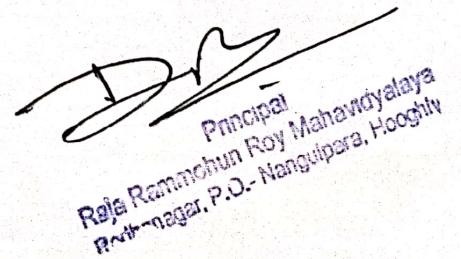 Principal
Raja Rammohun Roy Mahavidyalaya
Radhanagar, P.O.- Nangulpara, Hooghly